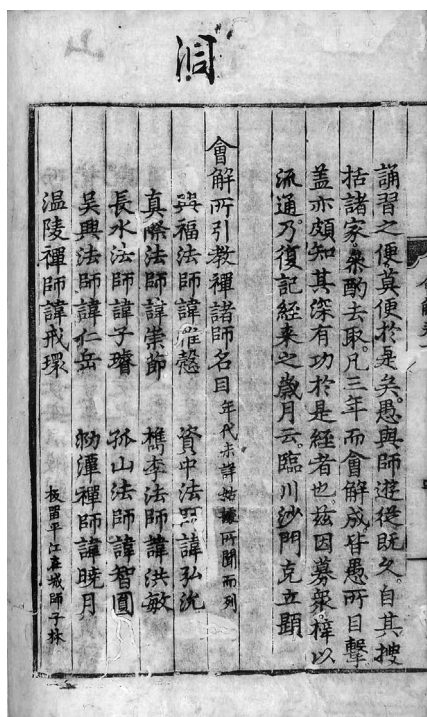 洞
誦習之便莫便於是矣。愚與師遊從既久。自其搜
括諸家。叅酌去取。凡三年而會解成。皆愚所目擊
盖亦頗知其深有功於是經者也。茲因募衆。梓以
流通。乃復記經来之歲月云。臨川沙門克立顯
會解所引教禪諸師名目 年代未詳姑據所聞而列
興福法師諱惟慤 資中法師諱弘沇
真際法師諱崇節 檇李法師諱洪敏
長水法師諱子璿 孤山法師諱智圓
吳興法師諱仁岳 泐潭禪師諱曉月
温陵禪師諱戒環 板留平江在城師子林